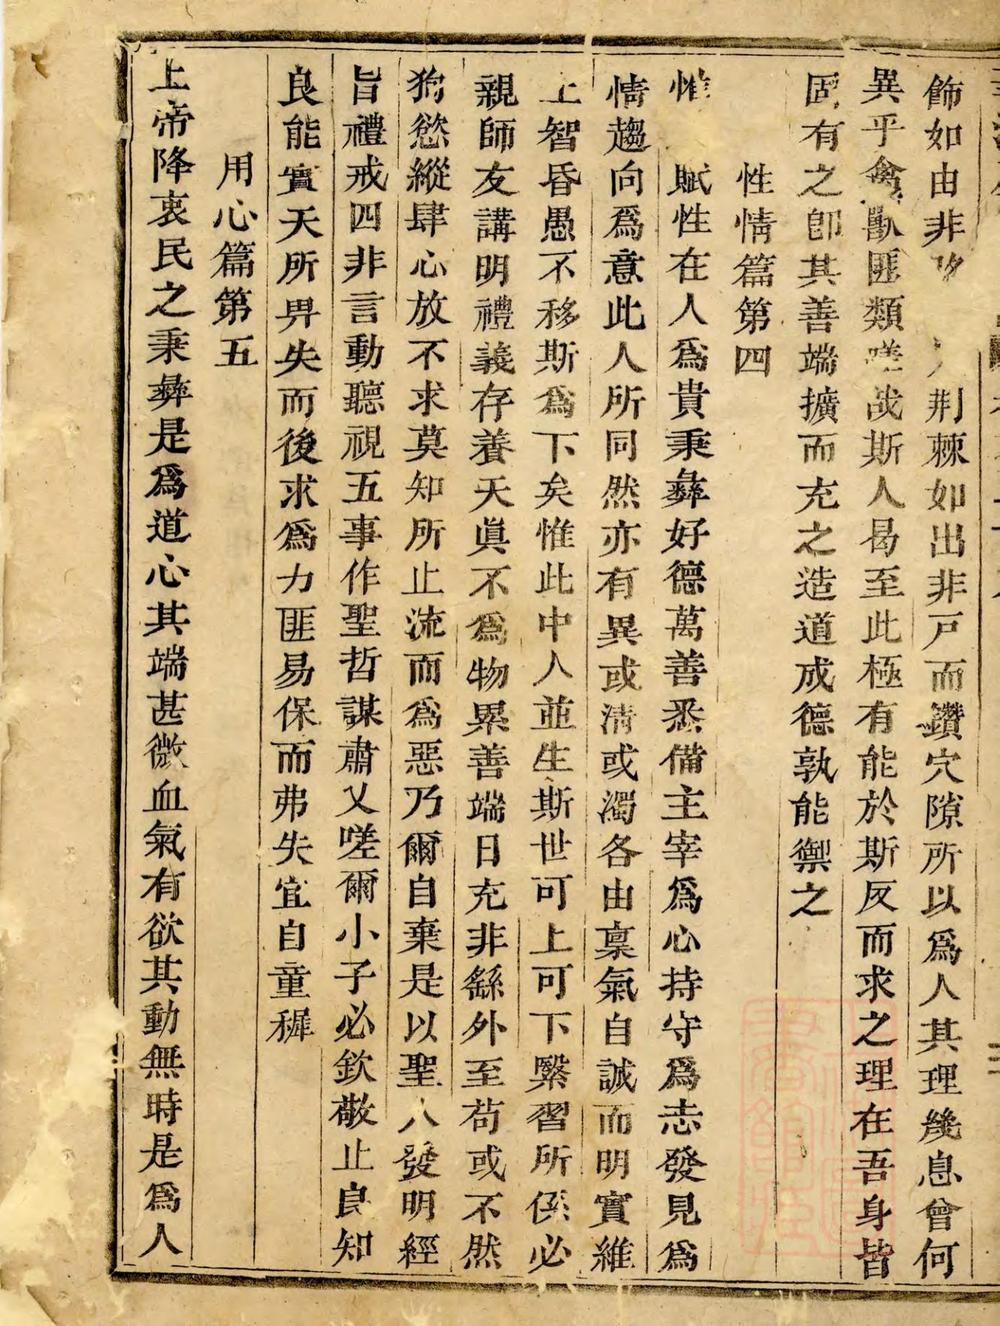 飾如由非路荆棘如出非戸而鑽穴隙所以爲人其理幾息曾何
異乎禽獸匪類嗟哉斯人曷至此極有能於斯反而求之理在吾身皆
固有之卽其善端擴而充之造道成德孰能禦之
性情篇第四
惟賦性在人爲貴秉彝好德萬善悉備主宰爲心持守爲志發見爲
情趨向爲意此人所同然亦有異或清或濁各由稟氣自誠而明實維
上智昏愚不移斯爲下矣惟此中人並生斯世可上可下繄習所係必
親師友講明禮義存養天眞不爲物累善端日充非繇外至苟或不然
狥慾縱肆心放不求莫知所止流而爲惡乃爾自棄是以聖人發明經
旨禮戒四非言動聽視五事作聖哲謀肅乂嗟爾小子必欽敬止良知
良能實天所畀失而後求爲力匪易保而弗失宜自童穉
用心篇第五
上帝降衷民之秉彝是爲道心其端甚微血氣有欲其動無時是爲人